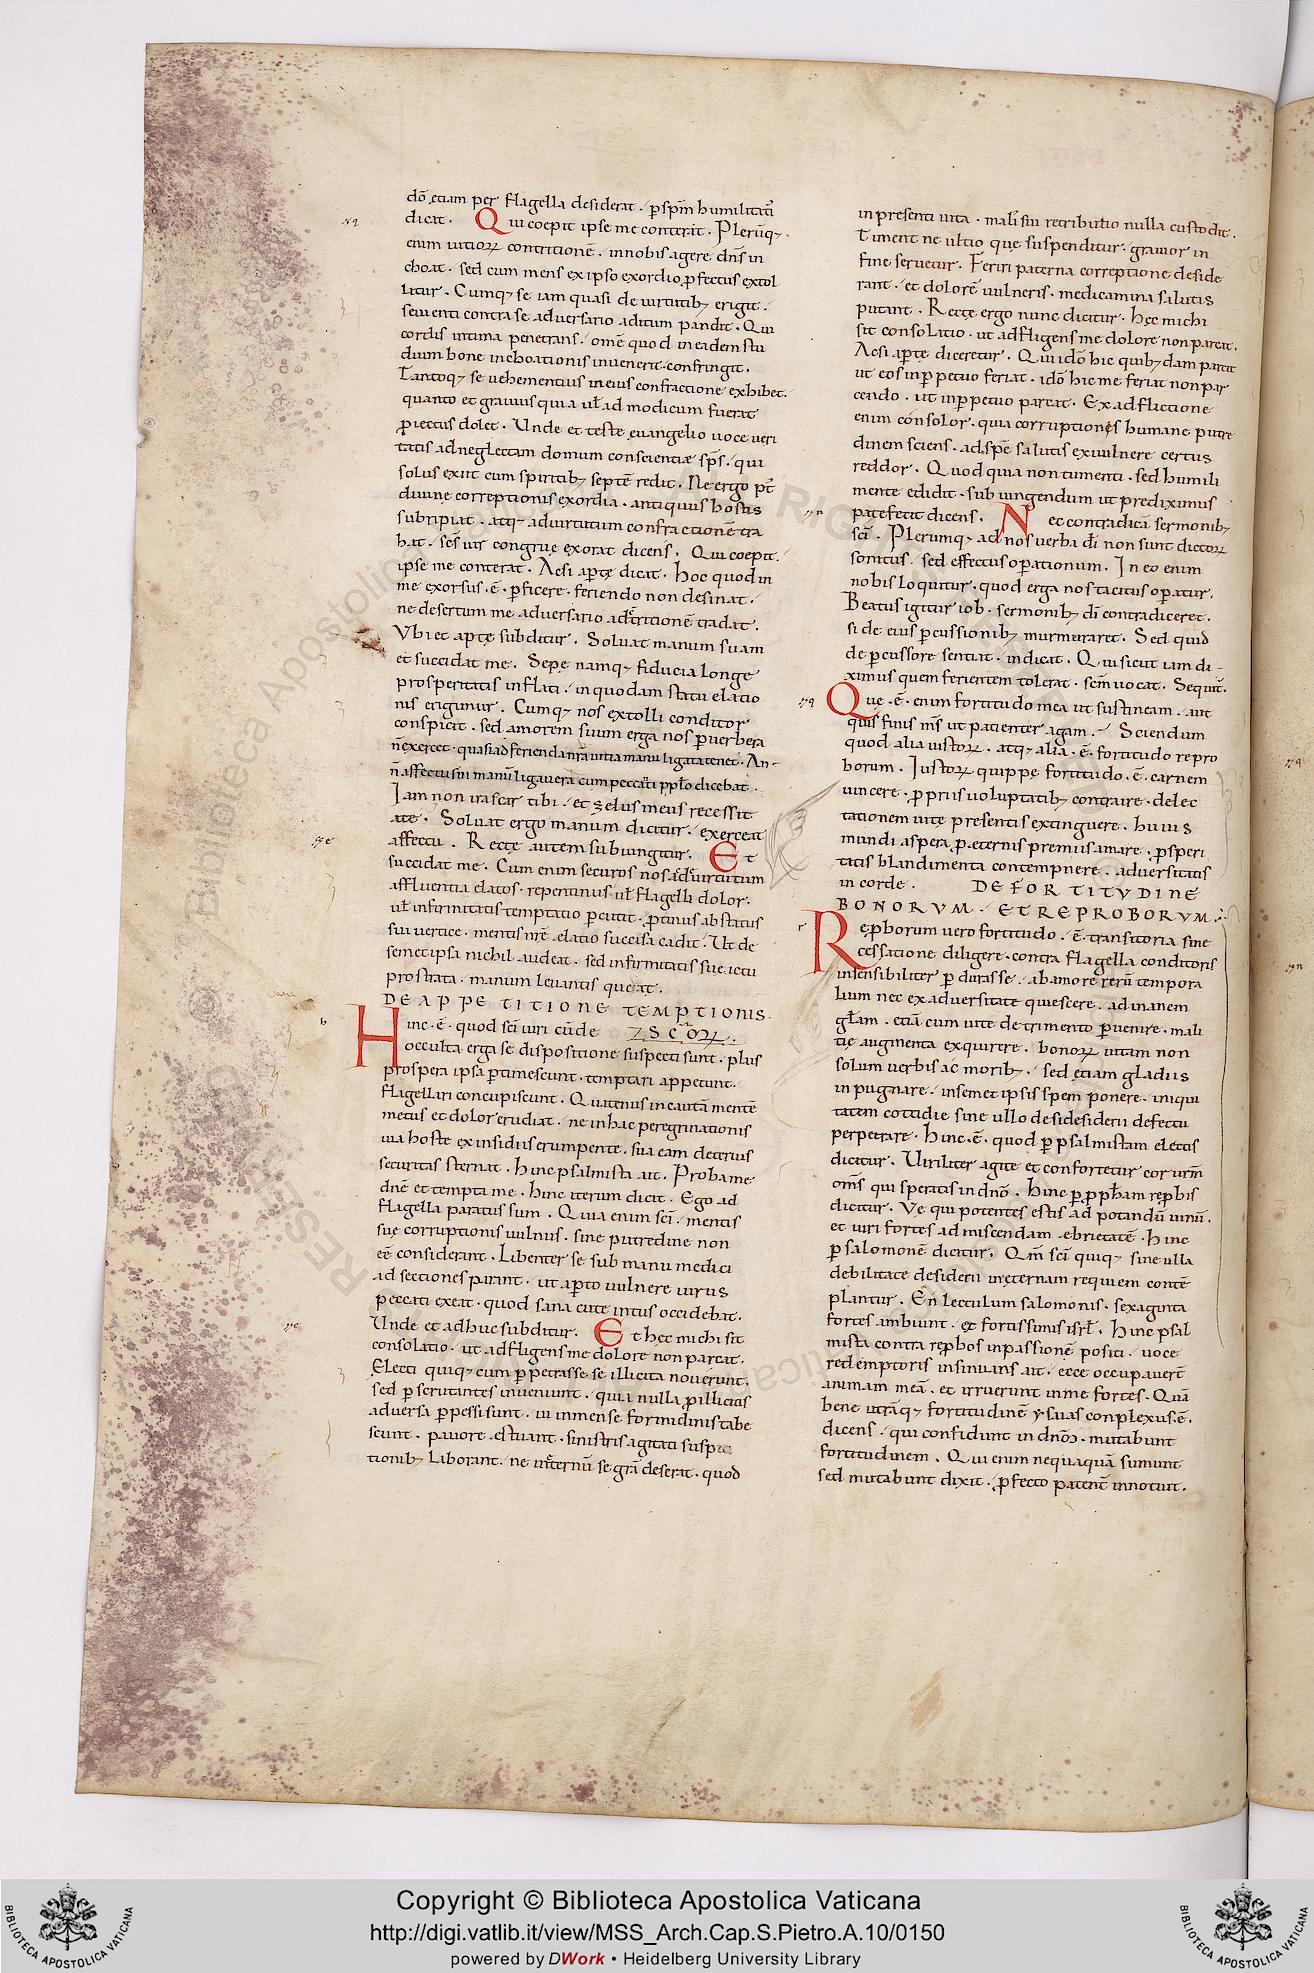 dō etiam per flagella desiderat . ꝑ spm̄ humilitatī
dicat . Qui coepit ipse me conterat . Plerūqꝫ
enim uitioꝝ contritionē . innobis agere dn̄s in
choat . sed cum mens ex ipso exordio ꝓfectus extol
litur . Cumqꝫ se iam quasi de uirtutibꝫ erigit .
seuienti contra se aduersario aditum pandit . Qui
cordis intima penetrans . om̄e quod in eadem stu
dium bone inchoationis inuenerit . confringit .
Tantoqꝫ se uehementius in eius confractione exhibet .
quanto et grauius quia uł ad modicum fuerat
ꝓiectus dolet . Unde et teste euangelio uoce ueri
tatis ad neglectam domum conscientiæ sps̄ . qui
solus exiit cum spiritibꝫ septē redit . Ne ergo pꝰt
diuine correptionis exordia . antiquus hostis
subripiat . atqꝫ ad uirtutum confractionē tra
hat . sc̄s uir congruę exorat dicens . Qui coepit .
ipse me conterat . Acsi aꝑtę dicat . Hoc quod in
me exorsus . ē . ꝑficere . feriendo non desinat .
ne desertum me aduersario ad tritionē tradat .
Vbi et aptę subditur . Soluat manum suam
et succidat me . Sepe namqꝫ fiducia longe
prosperitatis inflati . in quodam statu elatio
nis erigimur . Cumqꝫ nos extolli conditor
conspicit . sed amorem suum erga nos ꝑ uerbera
n̄ exercet . quasi ad ferienda nr̄a uitia manū ligatā tenet . An-
n̄ affectus sui manū ligauerat cum peccāti ppło dicebat .
Iam non irascar tibi . et zelus meus recessit
a te . Soluat ergo manum dicitur . exerceat
affectū . Recte autem subiungitur . Et
succidat me . Cum enim securos nos ad uirtutum
affluentia elatos . repentinus uł flagelli dolor .
uł infirmitatis temptatio ꝑcutit . ꝓtinus ab status
sui uertice . mentis nr̄e elatio succisa cadit . Ut de
semet ipsa nichil audeat . sed infirmitatis sue ictu
prostrata . manum leuantis querat .
DE APPETITIONE TEMPTIONIS .
Hinc . ē . quod sc̄i uiri cū de S C̄OꝜ .
occulta erga se dispositione suspecti sunt . plus
prospera ipsa ꝑtimescunt . temptari appetunt .
flagellari concupiscunt . Quatenus incautā mentē
metus et dolor erudiat . ne in hac peregrinationis
uia hoste ex insidiis erumpente . sua eam deterius
securitas sternat . hinc psalmista ait . Proba me
dn̄e et tempta me . hinc iterum dicit . Ego ad
flagella paratus sum . Quia enim sc̄i . mentis
sue corruptionis uulnus . sine putredine non
ēē considerant . Libenter se sub manu medici
ad sectiones parant . ut aꝑto uulnere uirus
peccati exeat . quod sana cute intus occidebat .
Unde et adhuc subditur . Et hec michi sit
consolatio . ut adfligens me dolore non parcat .
Electi quiqꝫ cum ꝑpetrasse se illicita nouerunt .
sed ꝑscrutantes inueniunt . quia nulla ꝓ illicitis
aduersa ꝑpessi sunt . ui inmense formidinis tabe
scunt . pauore estuant . sinistris agitati suspi
tionibꝫ laborant . ne inēternū se grā deserat . quod
in presenti uita . mali sui retributio nulla custodit .
Timent ne ultio que suspenditur . grauior in
fine seruetur . Feriri paterna correptione deside
rant . et dolorē uulneris . medicamina salutis
putant . Recte ergo nunc dicitur . hec michi
sit consolatio . ut adfligens me dolore non parcat .
Acsi aꝑtę diceretur . Qui idō hic quibꝫdam parcit
ut eos in ꝑpetuo feriat . idō hic me feriat non par
cendo . ut in ꝑpetuo parcat . Ex adflictione
enim consolor . quia corruptionis humane putre
dinem sciens . ad spē salutis ex uulnere certus
reddor . Quod quia non tumenti . sed humili
mente edidit . subiungendum ut prediximus
patefecit dicens . Nec contradicā sermonibꝫ
sc̄i . Plerumqꝫ ad nos uerba dī non sunt dictoꝝ
sonitus . sed effectus oꝑationum . In eo enim
nobis loquitur . quod erga nos tacitus oꝑatur .
Beatus igitur iob . sermonibꝫ dī contradiceret .
si de eius ꝑcussionibꝫ murmuraret . Sed quid
de ꝑcussore sentiat . indicat . Qui sicut iam di-
ximus quem ferientem tolerat . sc̄m uocat . Sequit̄ .
Que . ē . enim fortitudo mea ut sustineam . aut
quis finis m̄s ut patienter agam . Sciendum
quod alia iustoꝝ . atqꝫ alia . ē . fortitudo repro
borum . Iustoꝝ quippe fortitudo . ē . carnem
uincere . ꝓpriis uoluptatibꝫ contraire . delec
tationem uite presentis extinguere . huius
mundi aspera ꝓ eternis premiis amare . ꝓsperi
tatis blandimenta contempnere . aduersitatis
in corde . DE FORTITVDINE
BONORVM . ET REPROBORVM .
Reꝓborum uero fortitudo . ē . transitoria sine
cessatione diligere . contra flagella conditoris
insensibiliter ꝑdurasse . ab amore rerū tempora
lium nec ex aduersitate quiescere . ad inanem
głam . etiā cum uite detrimento ꝑuenire . mali
tię augmenta exquirere . bonoꝝ uitam non
solum uerbis ac moribꝫ . sed etiam gladiis
inpugnare . insemet ipsis spem ponere . iniqui
tatem cottidie sine ullo desidesiderii defectu
perpetrare . hinc . ē . quod ꝑ psalmistam electis
dicitur . Uiriliter agite et confortetur cor ur̄m
om̄s qui speratis in dn̄o . hinc ꝑ ꝓpham reꝓbis
dicitur . Ve qui potentes estis ad potandū uinū .
et uiri fortes ad miscendam ebrietatē . hinc
ꝑ salomonē dicitur . Qm̄ sc̄i quiqꝫ sine ulla
debilitate desiderii in eternam requiem contē
plantur . En lectulum salomonis . sexaginta
fortes ambiunt . et fortissimis isrł . hinc psal
mista contra reꝓbos in passionē positi . uoce
redemptoris insinuans ait . ecce occupauer̄t
animam meā . et irruerunt in me fortes . Quā
bene utrāqꝫ fortitudinē ysaias conplexus . ē .
dicens . qui confidunt in dn̄o . mutabunt
fortitudinem . Qui enim nequaquā sumunt
sed mutabunt dixit . ꝓfecto patent̄ innotuit .
Copyright © Biblioteca Apostolica Vaticana
http://digi.vatlib.it/view/MSS_Arch.Cap.S.Pietro.A.10/0150
powered by DWork • Heidelberg University Library
BIBLIOTECA APOSTOLICA VATICANA
BIBLIOTECA APOSTOLICA VATICANA